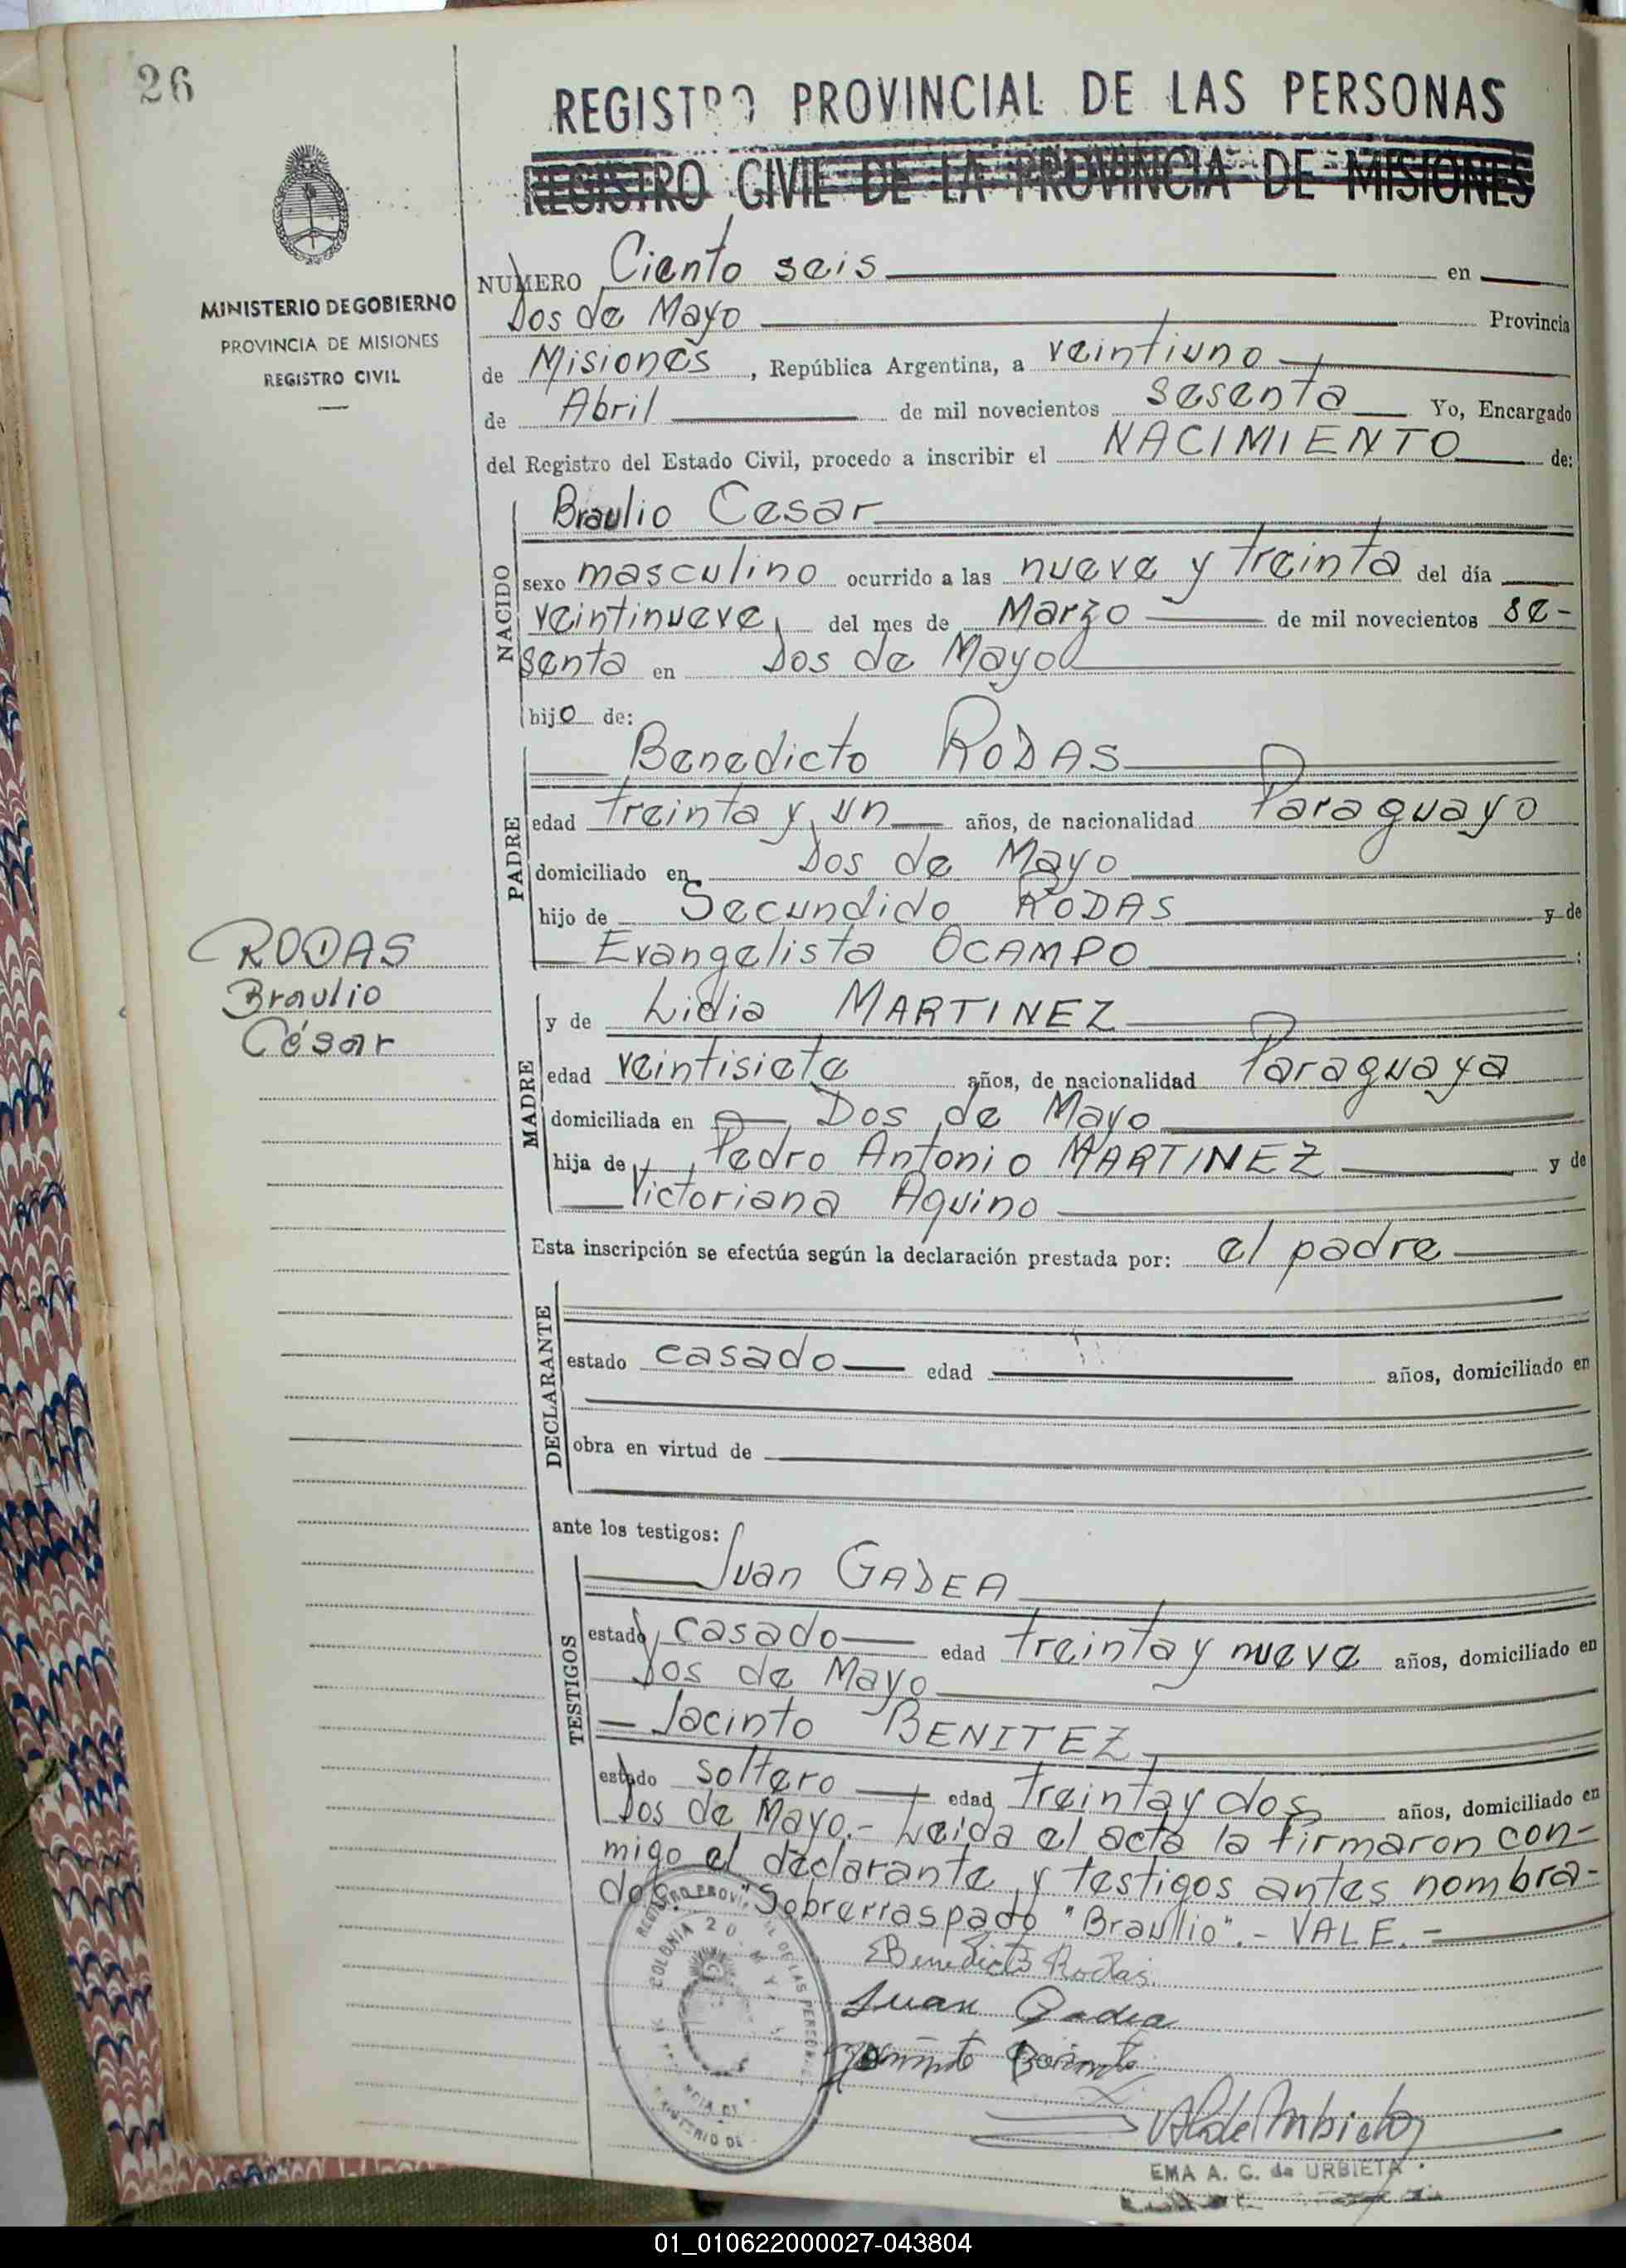 26
REGISTRO PROVINCIAL DE LAS PERSONAS
REGISTRO CIVIL DE LA PROVINCIA DE MISIONES
MINISTERIO DE GOBIERNO
PROVINCIA DE MISIONES
REGISTRO CIVIL
NUMERO Ciento seis en
Dos de Mayo Provincia
de Misiones, República Argentina, a veintiuno
de Abril de mil novecientos sesenta Yo, Encargado
del Registro del Estado Civil, procedo a inscribir el NACIMIENTO de:
NACIDO
Braulio Cesar
sexo masculino ocurrido a las nueve y treinta del día
veintinueve del mes de Marzo de mil novecientos se-
senta en Dos de Mayo
hijo de:
PADRE
Benedicto RODAS
edad treinta y un años, de nacionalidad Paraguayo
domiciliado en Dos de Mayo
hijo de Secundido RODAS y de
Evangelista OCAMPO :
RODAS
Braulio
César
MADRE
y de Lidia MARTINEZ
edad veintisiete años, de nacionalidad Paraguaya
domiciliada en Dos de Mayo
hija de Pedro Antonio MARTINEZ y de
Victoriana Aquino
Esta inscripción se efectúa según la declaración prestada por: el padre
DECLARANTE
estado casado edad años, domiciliado en
obra en virtud de
ante los testigos:
TESTIGOS
Juan GADEA
estado casado edad treinta y nueve años, domiciliado en
Dos de Mayo
Jacinto BENITEZ
estado soltero edad treinta y dos años, domiciliado en
Dos de Mayo.- Leida el acta la firmaron con-
migo el declarante y testigos antes nombra-
dos. "Sobrerraspado "Braulio".- VALE.-
Benedicto Rodas
Juan Gadea
EMA A. C. de URBIETA
COLONIA 2 D. M Y
01_010622000027-043804